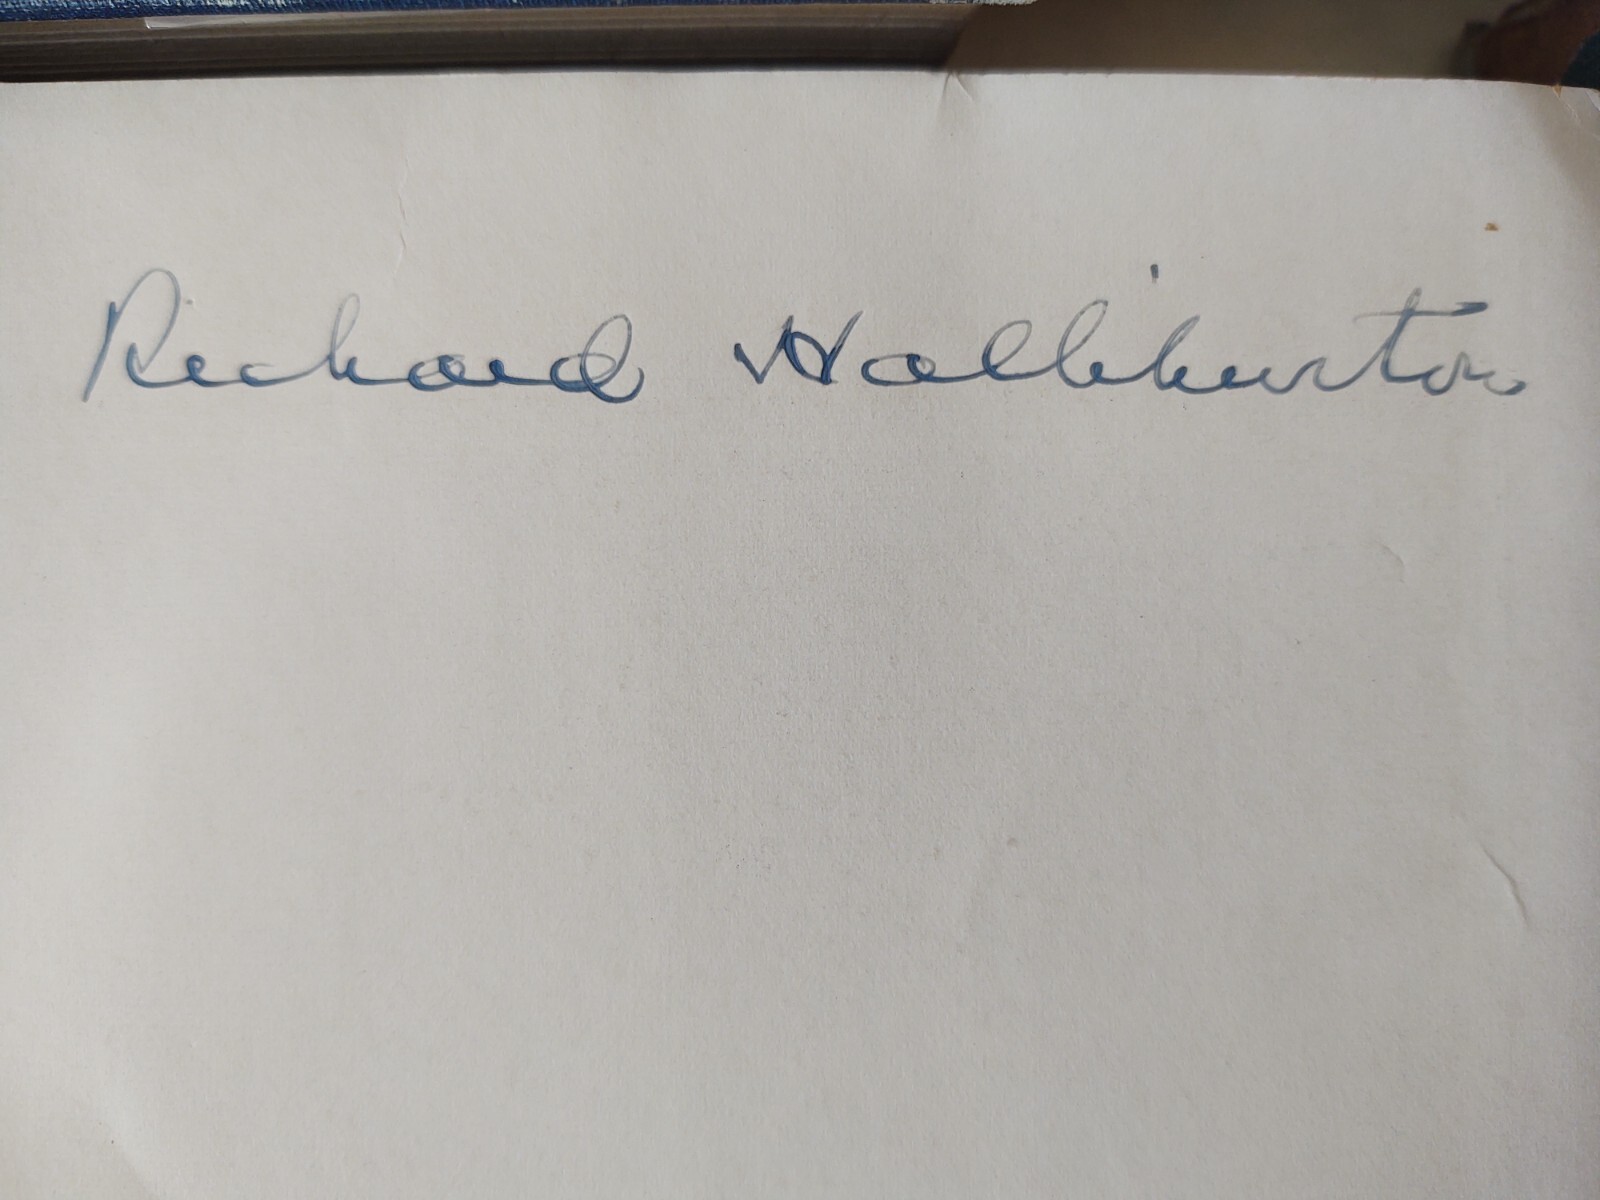 Richard Halliburton